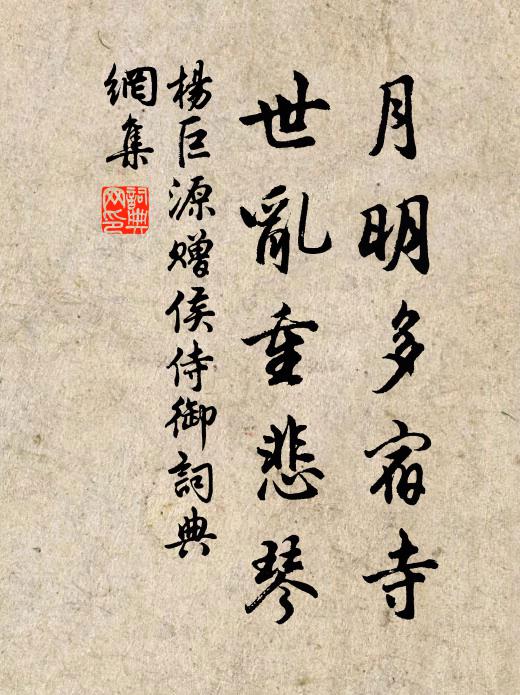 月明多宿寺
世亂重悲琴
楊巨源贈侯侍御詞典
網集
詞典网印